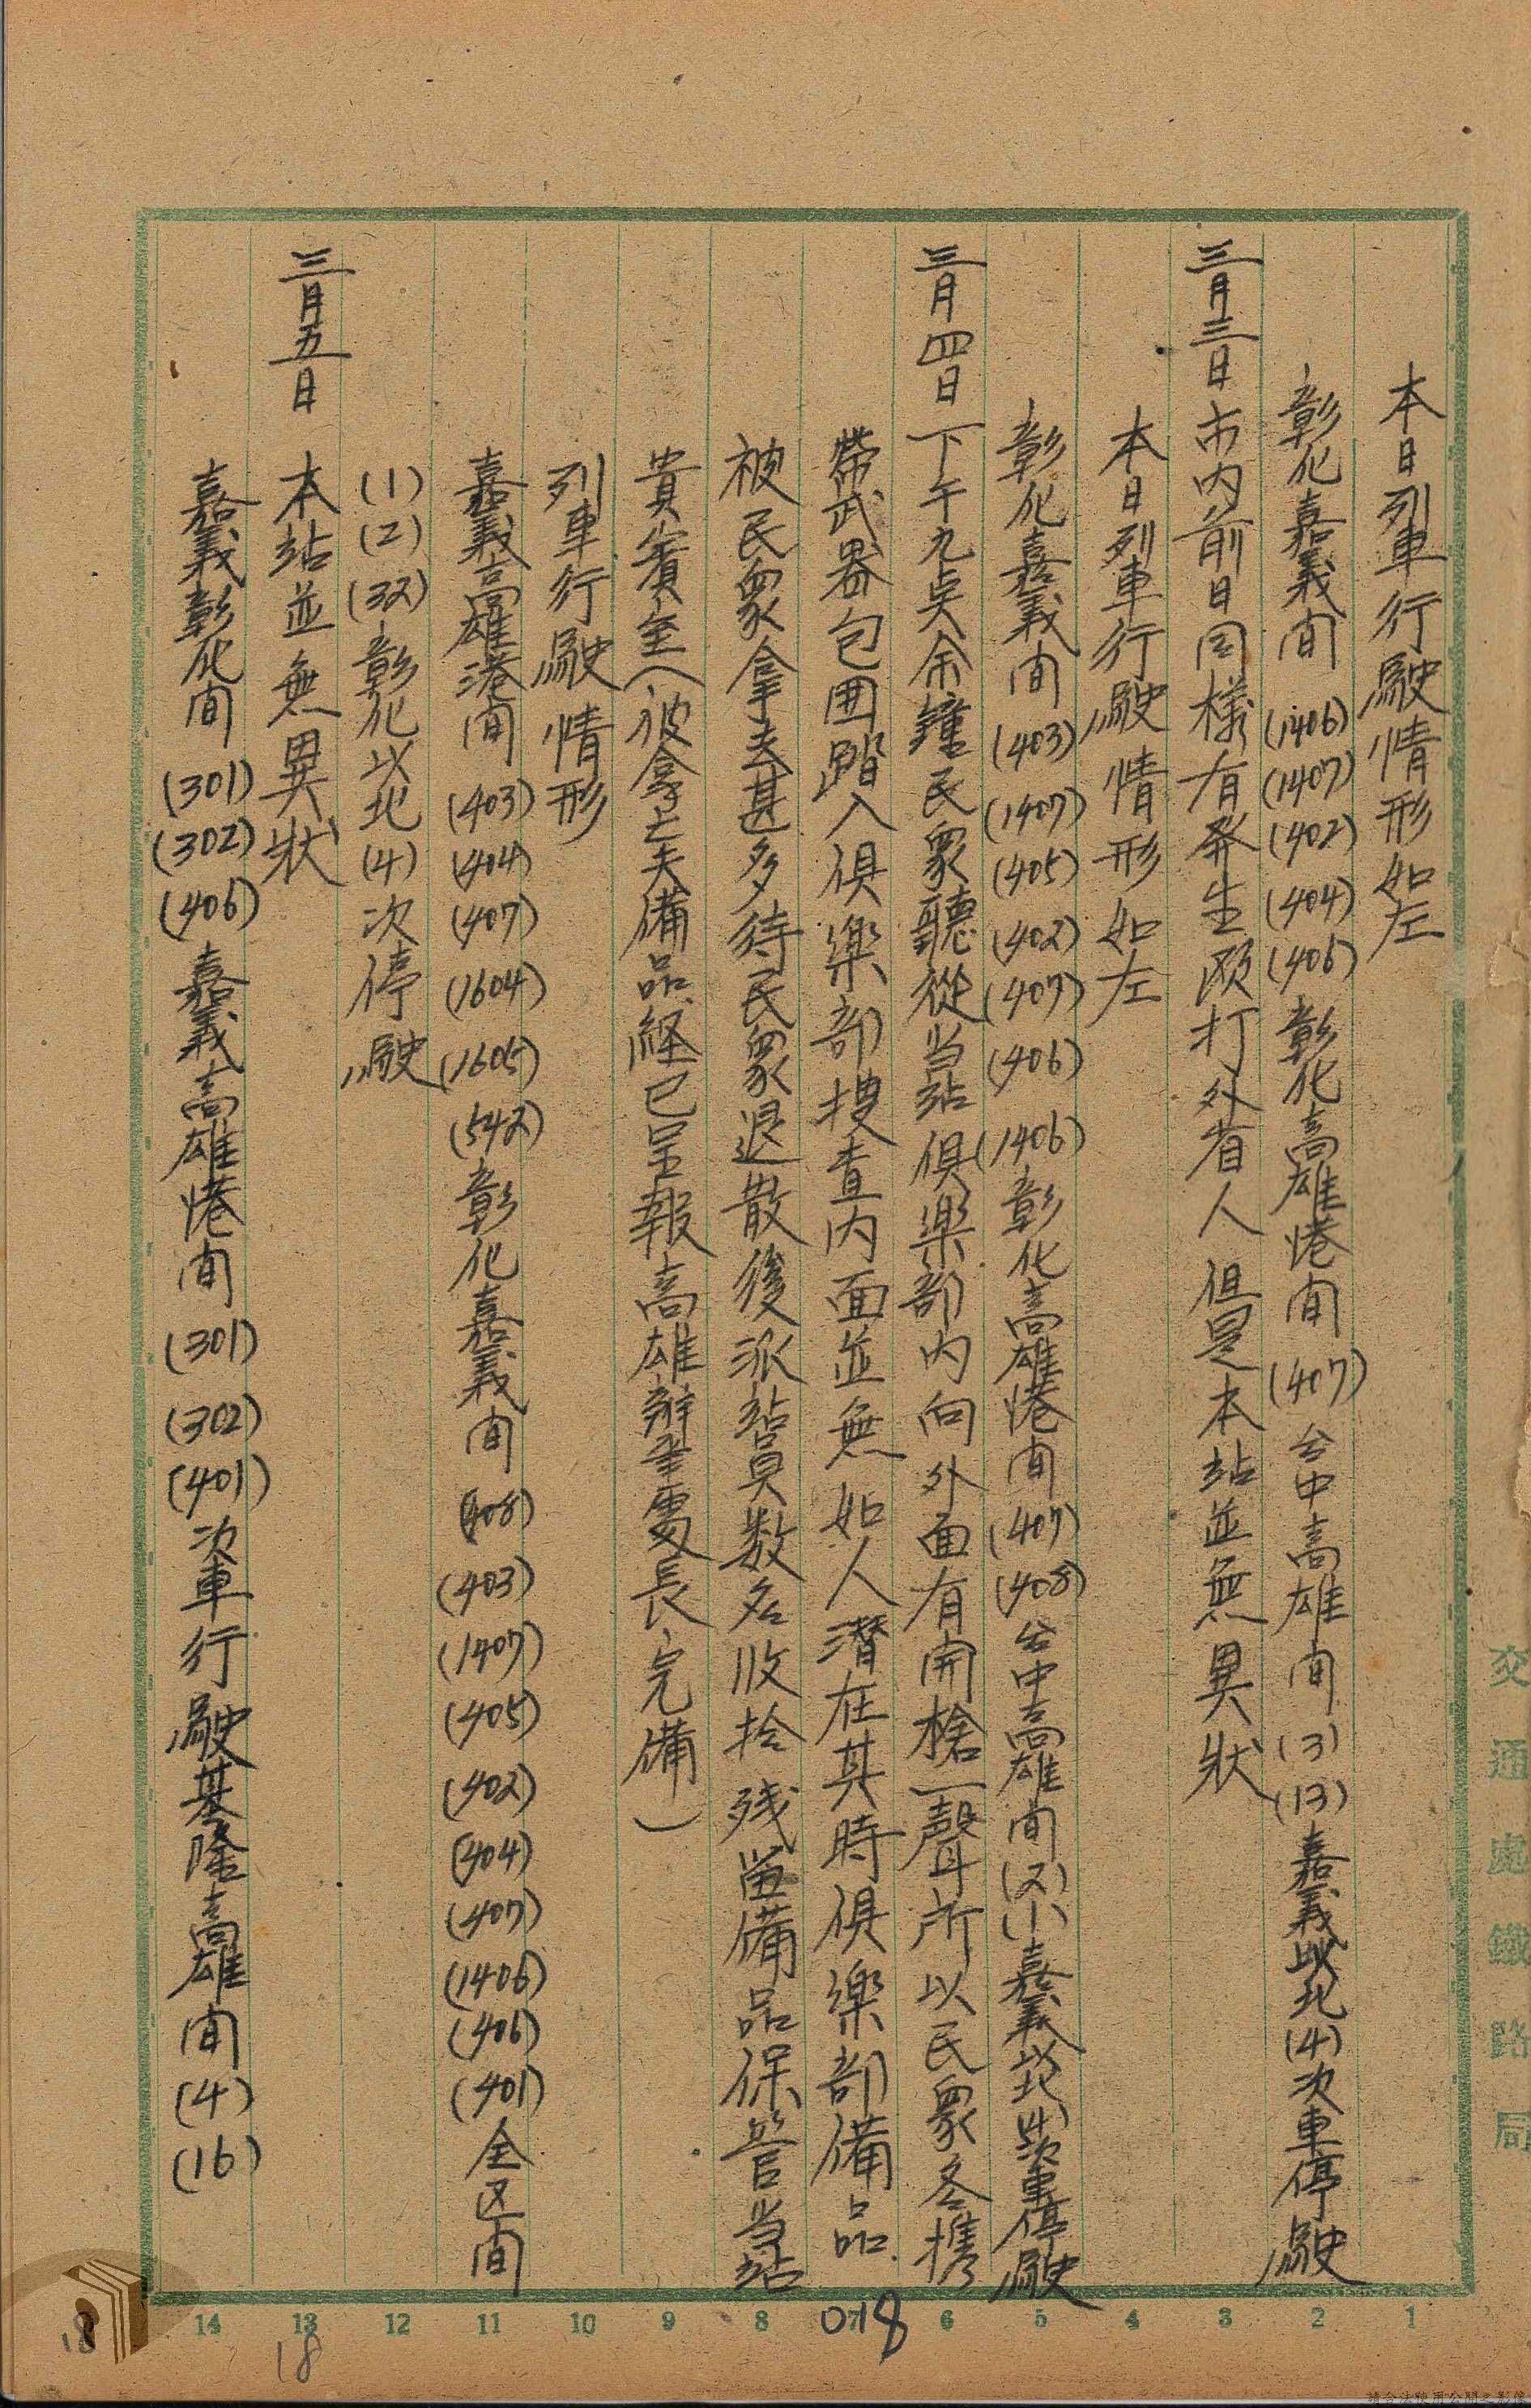 本日列車行駛情形如左
彰化嘉義間 (1406) (1407) (402) (404) (406) 彰化高雄港間 (407) 台中高雄間 (3) (13) 嘉義以北 (4) 次車停駛
三月三日 市内前日同樣有発生殴打外省人但是本站並無異狀
本日列車行駛情形如左
彰化嘉義間 (403) (1407) (405) (402) (407) (406) (1406) 彰化高雄港間 (407) (408) 台中高雄間 (2) 嘉義以北 次車停駛
三月四日 下午九点余鐘民衆聽從当站俱樂部内向外面有開槍一聲所以民衆各携
帶武器包囲踏入俱樂部搜查内面並無如人潛在其時俱樂部備品
被民衆拿去甚多待民衆退散後派站員数名收拾残留備品保管当站
貴賓室(被拿去夫備品経已呈報高雄辦事處長完備)
列車行駛情形
嘉義高雄港間 (403) (404) (407) (1604) (1605) (542) 彰化嘉義間 (408) (403) (1407) (405) (402) (404) (407) (1406) (406) (401) 全区間
(1) (2) (32) 彰化以北 (4) 次停駛
三月五日 本站並無異狀
嘉義彰化間 (301) (302) (406) 嘉義高雄港間 (301) (302) (401) 次車行駛基隆高雄間 (4) (16)
交通處鐵路局
1 2 3 4 5 6 7 8 9 10 11 12 13 14
018
18
18